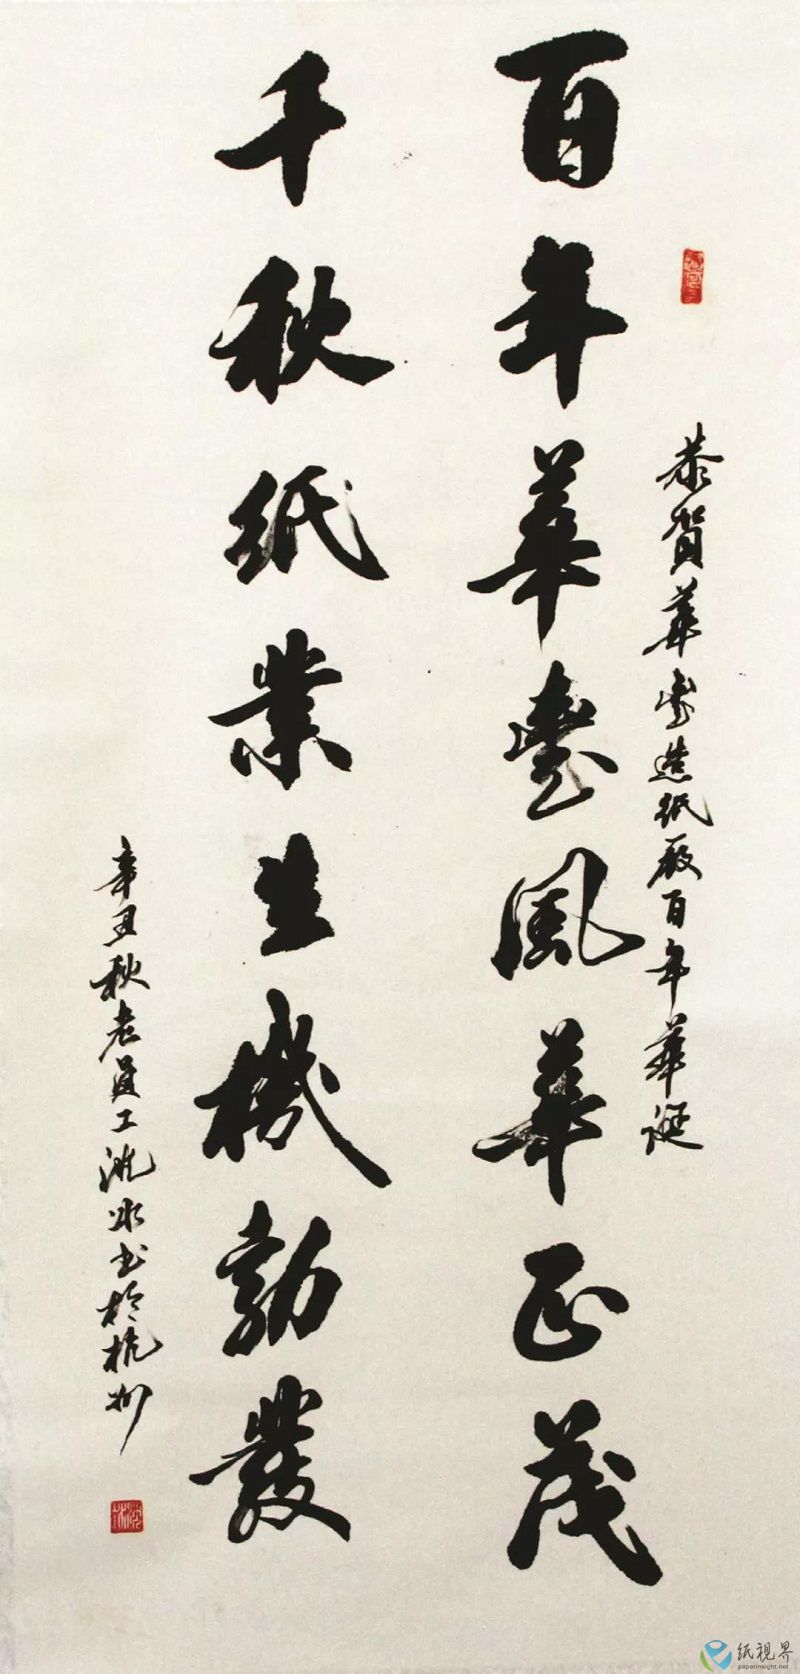 恭賀華豐造紙廠百年華誕
百年華豐風華正茂
千秋紙業生機勃發
辛丑秋老員工沈冰书於杭州
纸视界
paperinsight.net